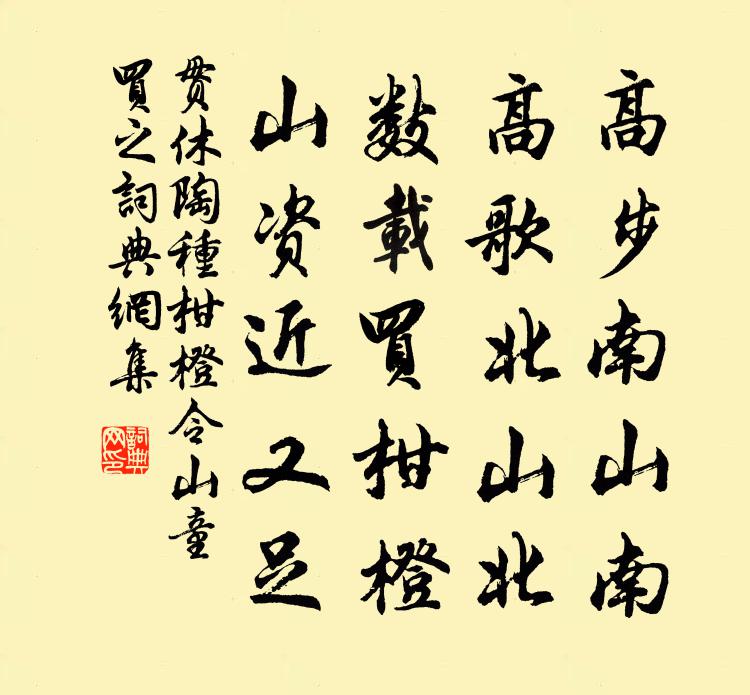 高步南山南
高歌北山北
数載買柑橙
山资近又足
贯休陶種柑橙令山童
買之詞典網集
詞典網印